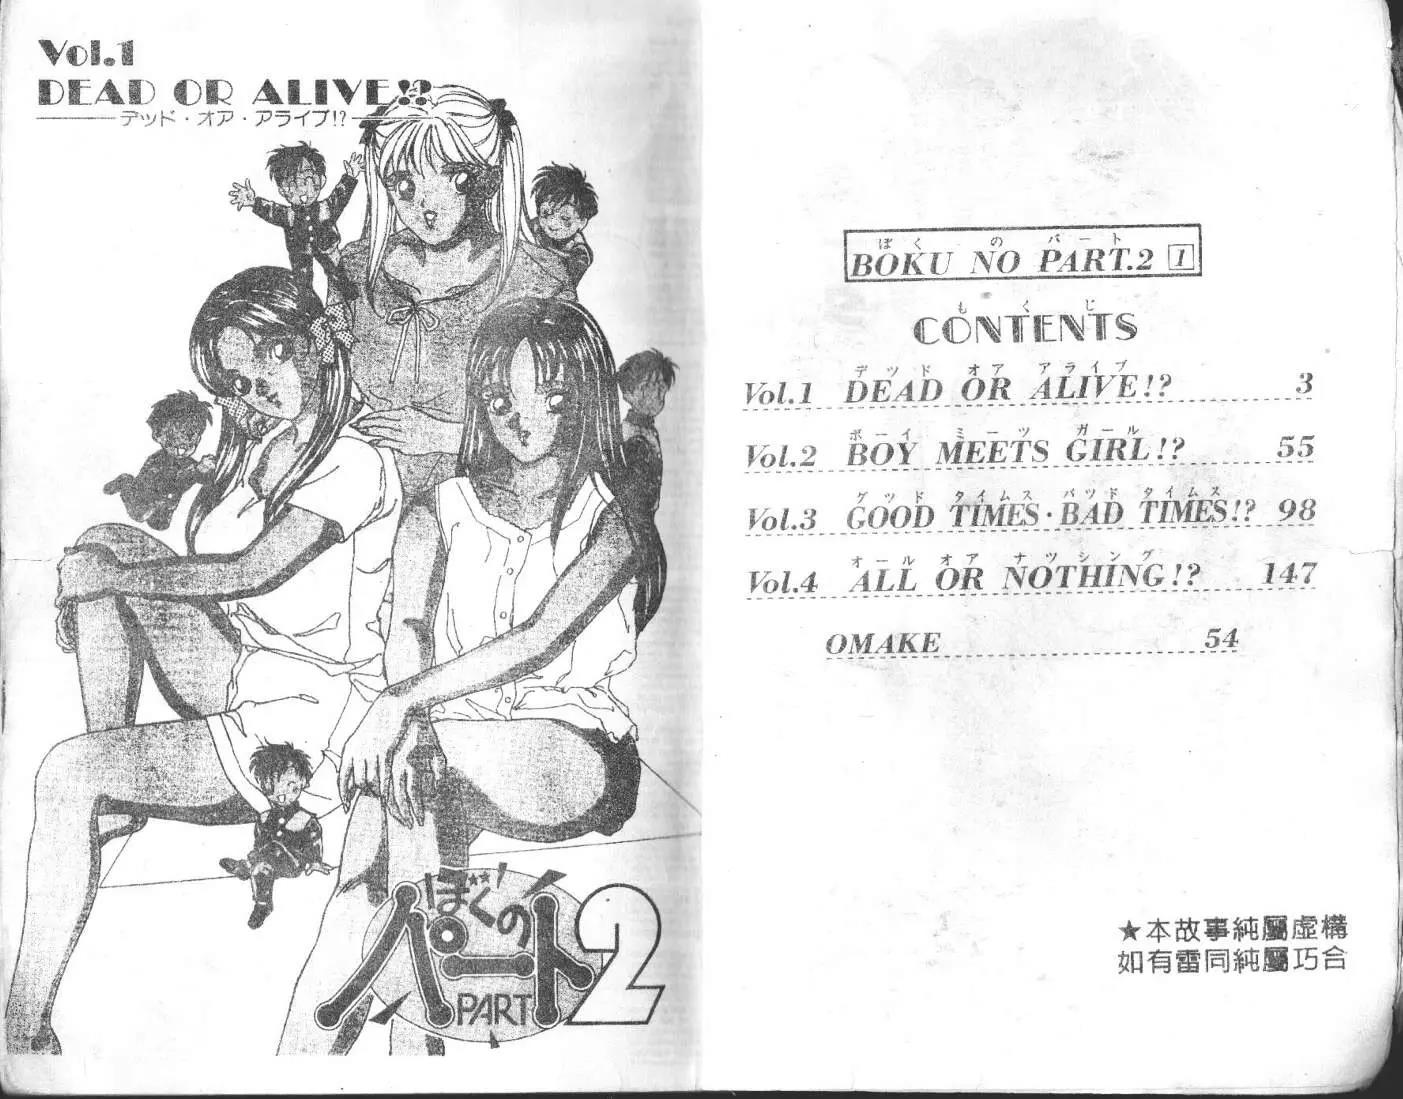 Vol.1
DEAD OR ALIVE!?
デッド・オア・アライブ!?
ぼくの
パート2
PART
ぼくのパート
BOKU NO PART.2 1
もくじ
CONTENTS
デッド オア アライブ
Vol.1 DEAD OR ALIVE!? 3
ボーイ ミーツ ガール
Vol.2 BOY MEETS GIRL!? 55
グッド タイムス バッド タイムス
Vol.3 GOOD TIMES・BAD TIMES!? 98
オール オア ナッシング
Vol.4 ALL OR NOTHING!? 147
OMAKE 54
★本故事純屬虛構
如有雷同純屬巧合